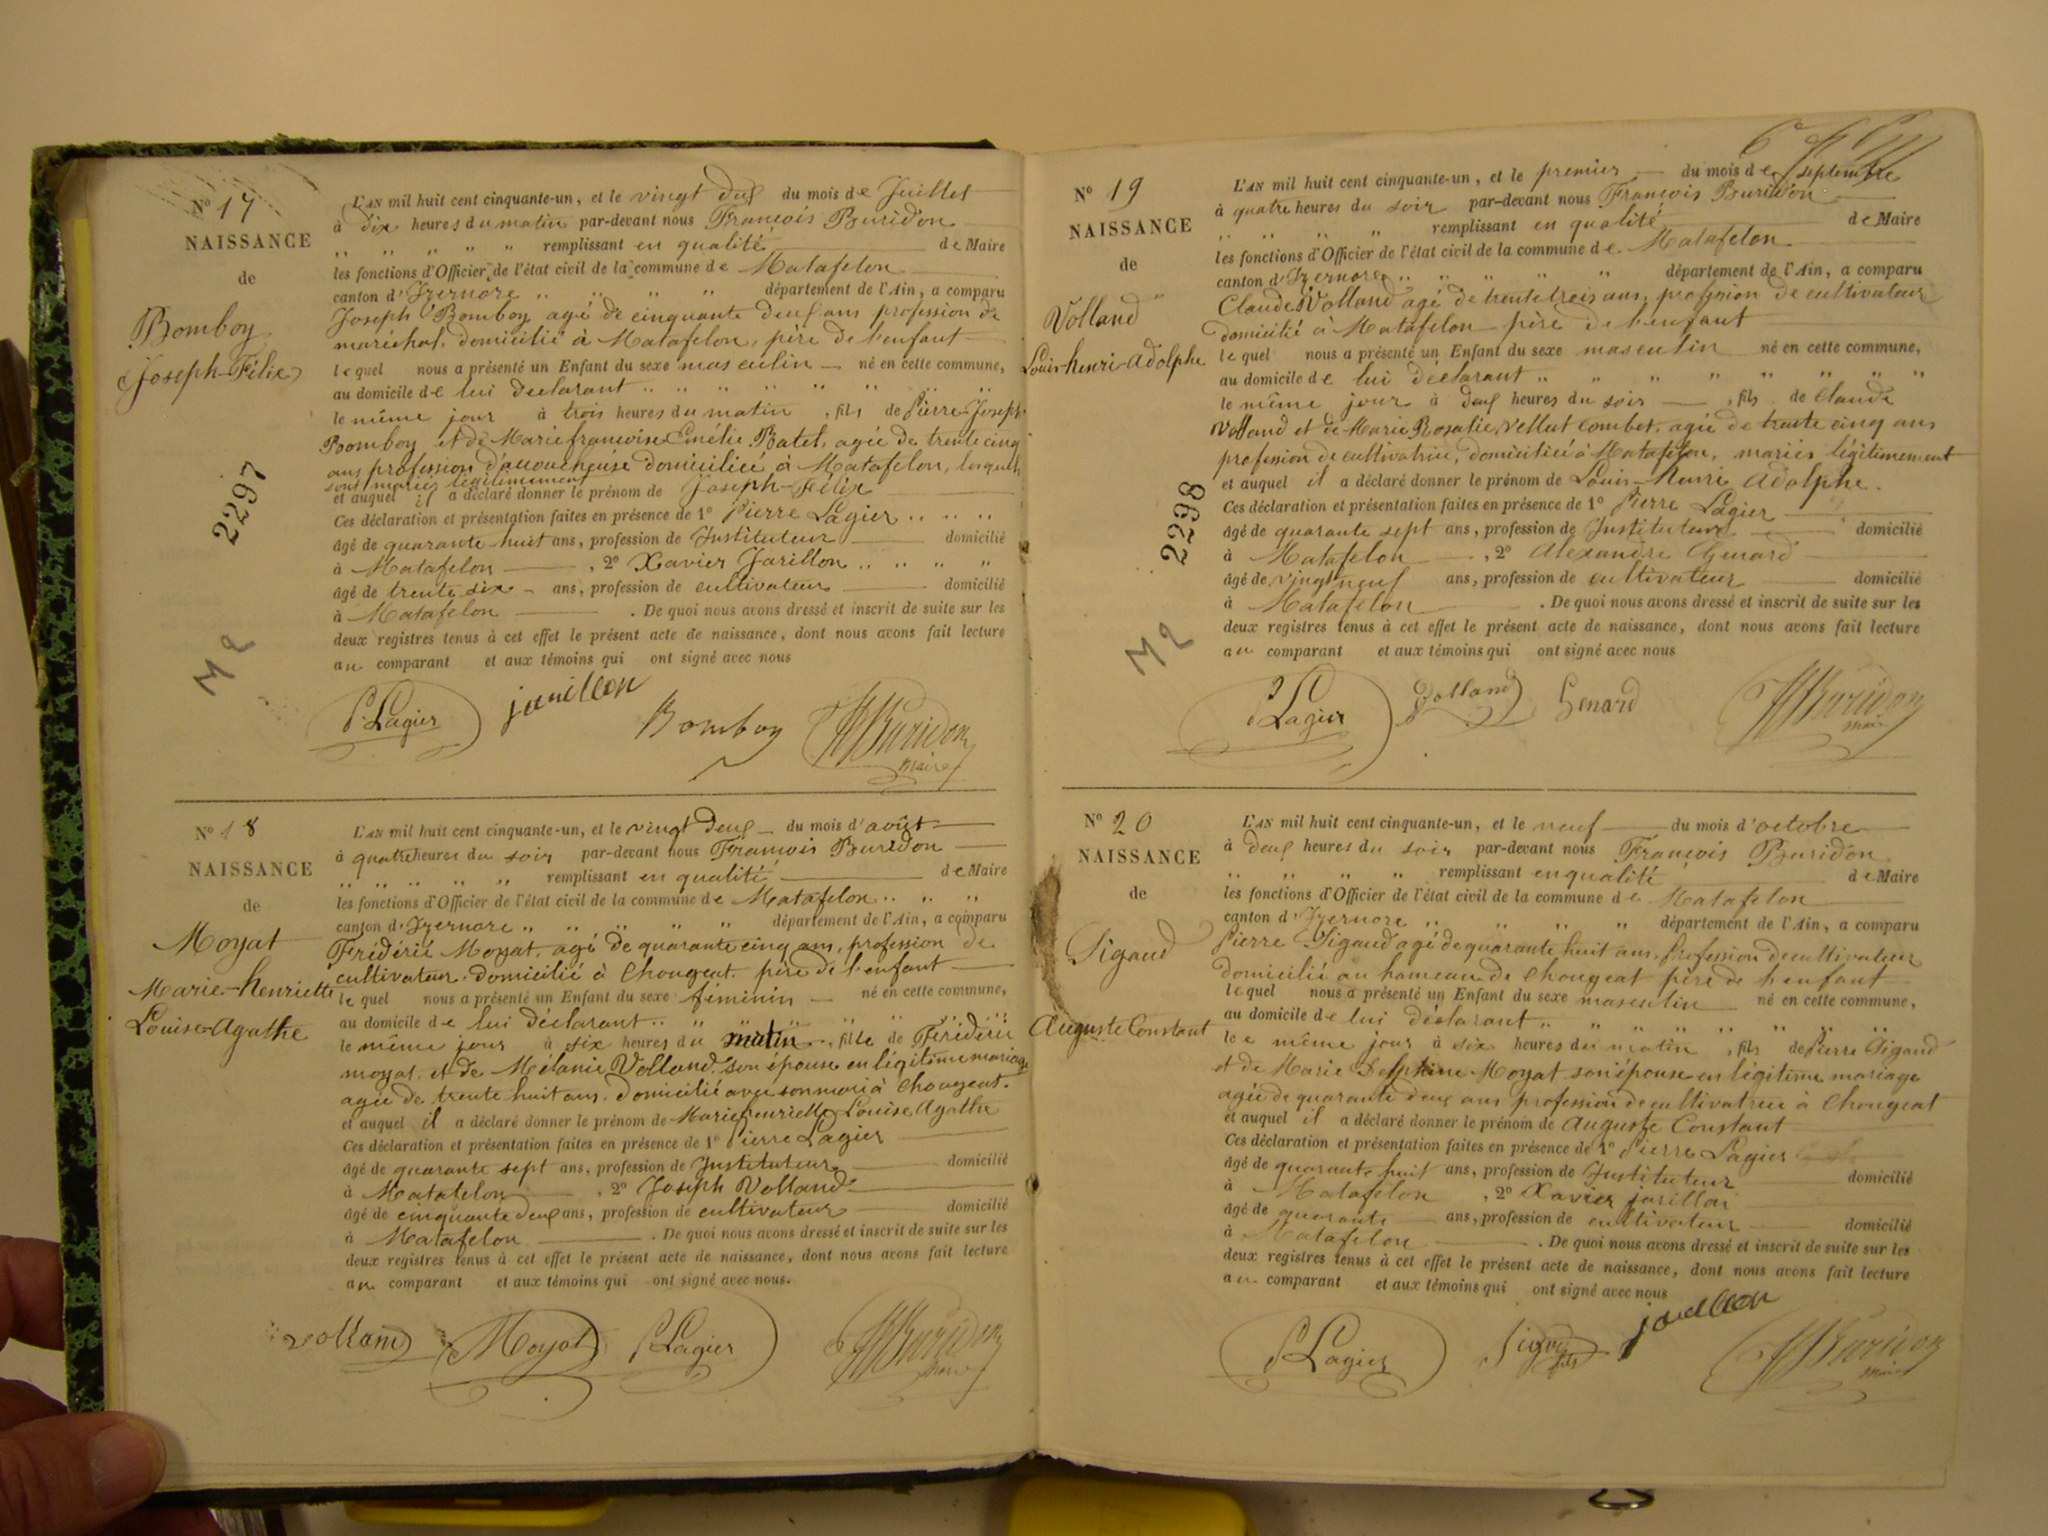 Nº 17
NAISSANCE
de
Bomboy
Joseph-Félix
2297
L'AN mil huit cent cinquante-un, et le vingt deux du mois de Juillet
à dix heures du matin par-devant nous François Buridon
remplissant en qualité de Maire
les fonctions d'Officier de l'état civil de la commune de Matafelon
canton d'Izernore département de l'Ain, a comparu
Joseph Bomboy agé de cinquante deux ans profession de
maréchal, domicilié à Matafelon, père de l'enfant
lequel nous a présenté un Enfant du sexe masculin né en cette commune,
au domicile de lui déclarant
le même jour à trois heures du matin, fils de Pierre Joseph
Bomboy et de Marie françoise Emélie Batel, agée de trente cinq
ans profession d'accoucheuse domiciliée à Matafelon, lesquels
sont mariés légitimement
et auquel il a déclaré donner le prénom de Joseph-Félix
Ces déclaration et présentation faites en présence de 1º Pierre Lagier
âgé de quarante huit ans, profession de Instituteur domicilié
à Matafelon, 2º Xavier Jarillon
âgé de trente six ans, profession de cultivateur domicilié
à Matafelon. De quoi nous avons dressé et inscrit de suite sur les
deux registres tenus à cet effet le présent acte de naissance, dont nous avons fait lecture
au comparant et aux témoins qui ont signé avec nous
P. Lagier jarillon Bomboy Buridon
maire
Nº 18
NAISSANCE
de
Moyat
Marie-henriette
Louise-Agathe
L'AN mil huit cent cinquante-un, et le vingt deux du mois d'août
à quatre heures du soir par-devant nous François Buridon
remplissant en qualité de Maire
les fonctions d'Officier de l'état civil de la commune de Matafelon
canton d'Izernore département de l'Ain, a comparu
Frédéric Moyat, agé de quarante cinq ans, profession de
cultivateur domicilié à Chougeat père de l'enfant
lequel nous a présenté un Enfant du sexe féminin né en cette commune,
au domicile de lui déclarant
le même jour à six heures du matin, fille de Frédéric
moyat et de Mélanie Volland son épouse en légitime mariage
agée de trente huit ans. domicilié avec son mari à Chougeat.
et auquel il a déclaré donner le prénom de Marie henriette Louise Agathe
Ces déclaration et présentation faites en présence de 1º Pierre Lagier
âgé de quarante sept ans, profession de Instituteur domicilié
à Matafelon, 2º Joseph Volland
âgé de cinquante deux ans, profession de cultivateur domicilié
à Matafelon. De quoi nous avons dressé et inscrit de suite sur les
deux registres tenus à cet effet le présent acte de naissance, dont nous avons fait lecture
au comparant et aux témoins qui ont signé avec nous.
volland Moyat P Lagier Buridon
maire
Nº 19
NAISSANCE
de
Volland
Louis-henri-Adolphe
2298
L'AN mil huit cent cinquante-un, et le premier du mois de septembre
à quatre heures du soir par-devant nous François Buridon
remplissant en qualité de Maire
les fonctions d'Officier de l'état civil de la commune de Matafelon
canton d'Izernore département de l'Ain, a comparu
Claude Volland agé de trente trois ans, profession de cultivateur
domicilié à Matafelon père de l'enfant
lequel nous a présenté un Enfant du sexe masculin né en cette commune,
au domicile de lui déclarant
le même jour à deux heures du soir, fils de Claude
Volland et de Marie Rosalie Vellut Combet, agée de trente cinq ans
profession de cultivatrice, domiciliée à Matafelon, mariés légitimement
et auquel il a déclaré donner le prénom de Louis-Henri Adolphe.
Ces déclaration et présentation faites en présence de 1º Pierre Lagier
âgé de quarante sept ans, profession de Instituteur domicilié
à Matafelon, 2º Alexandre Genard
âgé de vingt neuf ans, profession de cultivateur domicilié
à Matafelon. De quoi nous avons dressé et inscrit de suite sur les
deux registres tenus à cet effet le présent acte de naissance, dont nous avons fait lecture
au comparant et aux témoins qui ont signé avec nous
P Lagier Volland Genard Buridon
maire
Nº 20
NAISSANCE
de
Sigaud
Auguste Constant
L'AN mil huit cent cinquante-un, et le neuf du mois d'octobre
à deux heures du soir par-devant nous François Buridon
remplissant en qualité de Maire
les fonctions d'Officier de l'état civil de la commune de Matafelon
canton d'Izernore département de l'Ain, a comparu
Pierre Sigaud agé de quarante huit ans. Profession de cultivateur
domicilié au hameau de Chougeat père de l'enfant
lequel nous a présenté un Enfant du sexe masculin né en cette commune,
au domicile de lui déclarant
le même jour à six heures du matin, fils de Pierre Sigaud
et de Marie Delphine Moyat son épouse en légitime mariage
agée de quarante deux ans profession de cultivatrice à Chougeat
et auquel il a déclaré donner le prénom de Auguste Constant
Ces déclaration et présentation faites en présence de 1º Pierre Lagier
âgé de quarante huit ans, profession de Instituteur domicilié
à Matafelon, 2º Xavier jarillon
âgé de quarante ans, profession de cultivateur domicilié
à Matafelon. De quoi nous avons dressé et inscrit de suite sur les
deux registres tenus à cet effet le présent acte de naissance, dont nous avons fait lecture
au comparant et aux témoins qui ont signé avec nous
P Lagier jarillon Buridon
maire